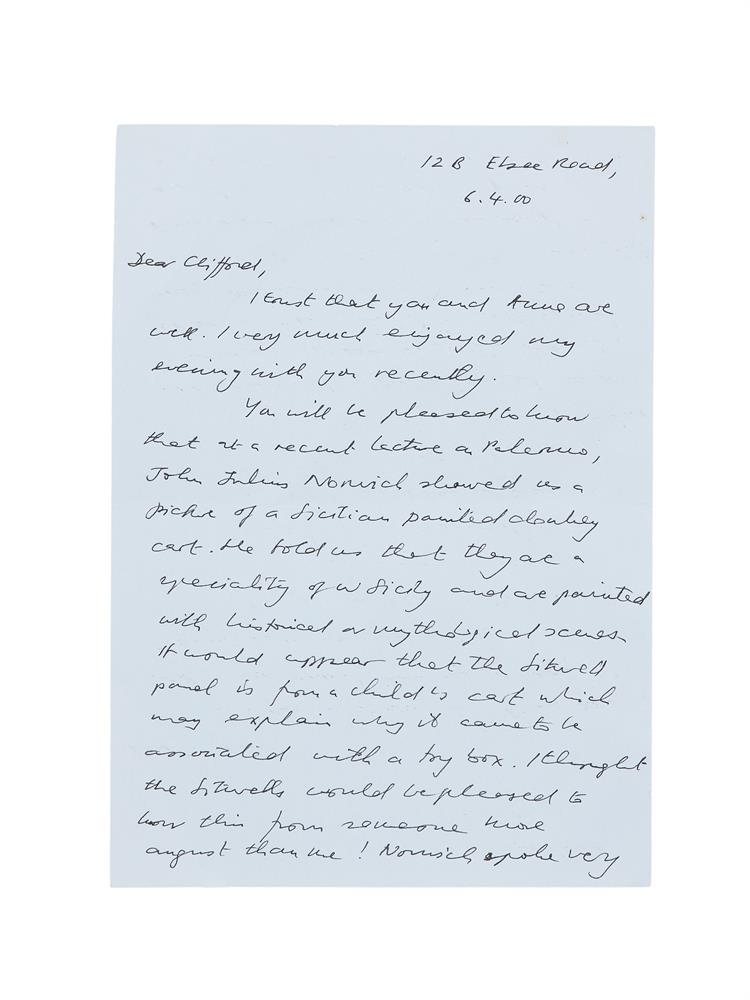 12 B Elsee Road,
6.4.00
Dear Clifford,
I trust that you and Anne are
well. I very much enjoyed my
evening with you recently.
You will be pleased to know
that at a recent lecture on Palermo,
John Julius Norwich showed us a
picture of a Sicilian painted donkey
cart. He told us that they are a
speciality of W Sicily and are painted
with historical or mythological scenes.
It would appear that the Sitwell
panel is from a child's cart which
may explain why it came to be
associated with a toy box. I thought
the Sitwells would be pleased to
know this from someone more
august than me! Norwich spoke very